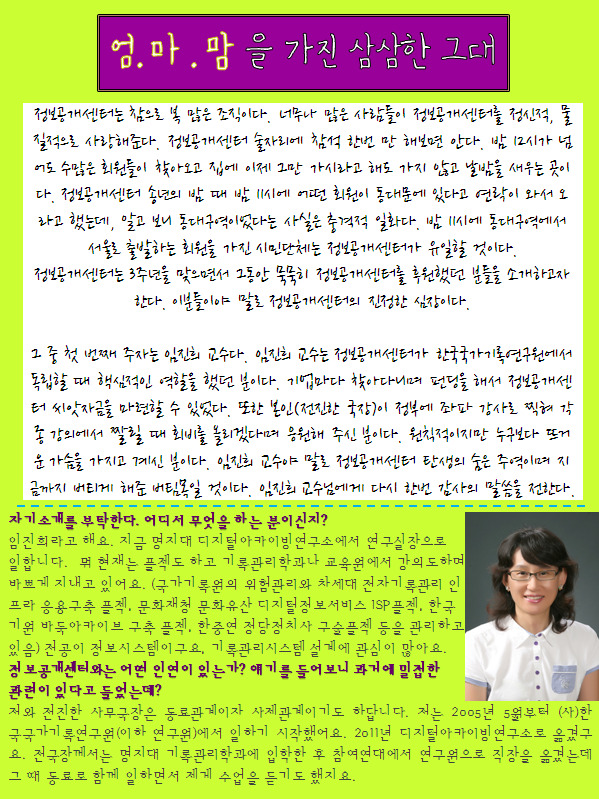 엄.마.맘을 가진 삼삼한 그대
정보공개센터는 참으로 복 많은 조직이다. 너무나 많은 사람들이 정보공개센터를 정신적, 물
질적으로 사랑해준다. 정보공개센터 술자리에 참석 한번 만 해보면 안다. 밤 12시가 넘
어도 수많은 회원들이 찾아오고 집에 이제 그만 가시라고 해도 가지 않고 날밤을 새우는 곳이
다. 정보공개센터 송년의 밤 때 밤 11시에 어떤 회원이 동대문에 있다고 연락이 와서 오
라고 했는데, 알고 보니 동대구역이었다는 사실은 충격적 일화다. 밤 11시에 동대구역에서
서울로 출발하는 회원을 가진 시민단체는 정보공개센터가 유일할 것이다.
정보공개센터는 3주년을 맞으면서 그동안 묵묵히 정보공개센터를 후원했던 분들을 소개하고자
한다. 이분들이야 말로 정보공개센터의 진정한 심장이다.
그 중 첫 번째 주자는 임진희 교수다. 임진희 교수는 정보공개센터가 한국국가기록연구원에서
독립할 때 핵심적인 역할을 했던 분이다. 기업마다 찾아다니며 펀딩을 해서 정보공개센
터 씨앗자금을 마련할 수 있었다. 또한 본인(전진한 국장)이 정부에 좌파 강사로 찍혀 각
종 강의에서 짤릴 때 회비를 올리겠다며 응원해 주신 분이다. 원칙적이지만 누구보다 뜨거
운 가슴을 가지고 계신 분이다. 임진희 교수야 말로 정보공개센터 탄생의 숨은 주역이며 지
금까지 버티게 해준 버팀목일 것이다. 임진희 교수님에게 다시 한번 감사의 말씀을 전한다.
자기소개를 부탁한다. 어디서 무엇을 하는 분이신지?
임진희라고 해요. 지금 명지대 디지털아카이빙연구소에서 연구실장으로
일합니다. 뭐 현재는 플젝도 하고 기록관리학과나 교육원에서 강의도하며
바쁘게 지내고 있어요. (국가기록원의 위험관리와 차세대 전자기록관리 인
프라 응용구축 플젝, 문화재청 문화유산 디지털정보서비스 ISP플젝, 한국
기원 바둑아카이브 구축 플젝, 한중연 정당정치사 구술플젝 등을 관리하고
있음) 전공이 정보시스템이구요, 기록관리시스템 설계에 관심이 많아요.
정보공개센터와는 어떤 인연이 있는가? 얘기를 들어보니 과거에 밀접한
관련이 있다고 들었는데?
저와 전진한 사무국장은 동료관계이자 사제관계이기도 하답니다. 저는 2005년 5월부터 (사)한
국국가기록연구원(이하 연구원)에서 일하기 시작했어요. 2011년 디지털아카이빙연구소로 옮겼구
요. 전국장께서는 명지대 기록관리학과에 입학한 후 참여연대에서 연구원으로 직장을 옮겼는데
그 때 동료로 함께 일하면서 제게 수업을 듣기도 했지요.